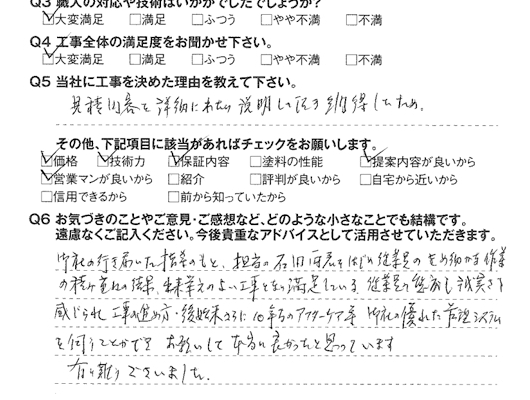 Q3 職人の対応や技術はいかがでしたでしょうか？
☑大変満足 □満足 □ふつう □やや不満 □不満
Q4 工事全体の満足度をお聞かせ下さい。
☑大変満足 □満足 □ふつう □やや不満 □不満
Q5 当社に工事を決めた理由を教えて下さい。
見積内容を詳細にわたり説明して頂き納得したため。
その他、下記項目に該当があればチェックをお願いします。
☑価格 ☑技術力 ☑保証内容 □塗料の性能 ☑提案内容が良いから
☑営業マンが良いから □紹介 □評判が良いから □自宅から近いから
□信用できるから □前から知っていたから
Q6 お気づきのことやご意見・ご感想など、どのような小さなことでも結構です。
遠慮なくご記入ください。今後貴重なアドバイスとして活用させていただきます。
御社の行き届いた指導のもと、担当の石川 をはじめ従業員のきめ細かな作業
の積み重ねの結果、出来栄えのよい工事となり満足している。従業員の態度も誠実さを
感じられ 工事の進め方・後始末さらに10年間のアフターケア等 御社の優れた システム
を伺うことができ お願いして本当に良かったと思っています
有り難うございました。